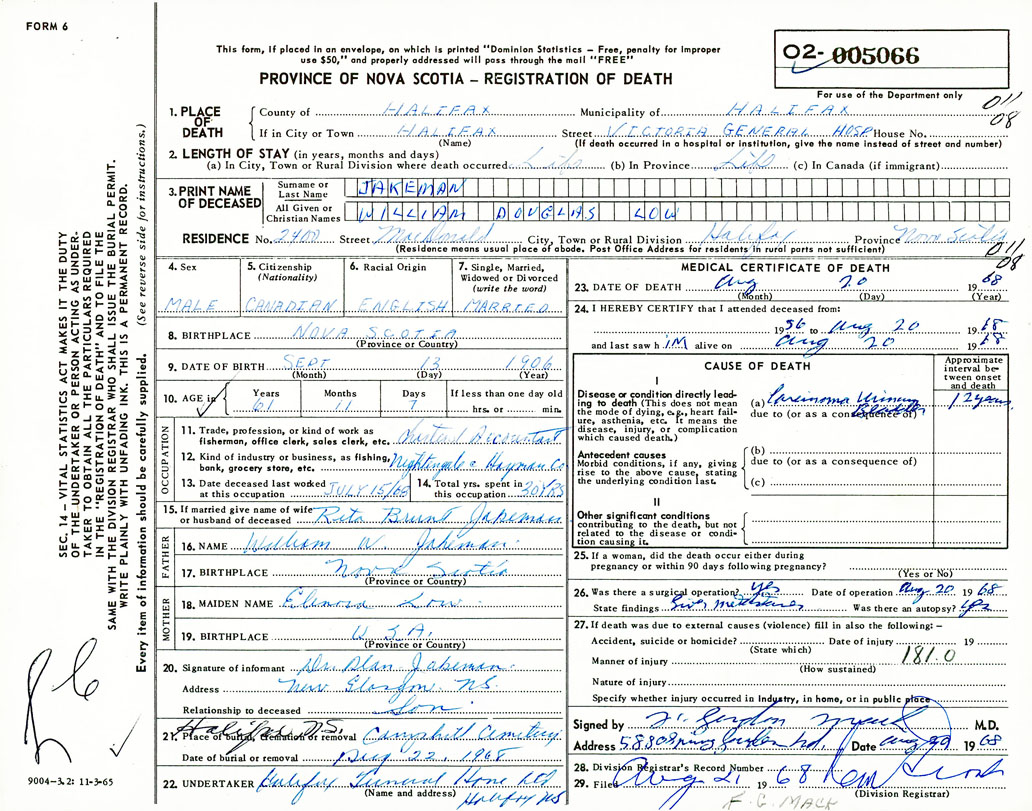 FORM 6
This form, if placed in an envelope, on which is printed "Dominion Statistics – Free, penalty for improper
use $50," and properly addressed will pass through the mail "FREE"
PROVINCE OF NOVA SCOTIA – REGISTRATION OF DEATH
02- 005066
For use of the Department only
011
08
1. PLACE OF DEATH
County of HALIFAX Municipality of HALIFAX
If in City or Town HALIFAX Street VICTORIA GENERAL HOSP House No.
(Name) (If death occurred in a hospital or institution, give the name instead of street and number)
2. LENGTH OF STAY (in years, months and days)
(a) In City, Town or Rural Division where death occurred Life (b) In Province Life (c) In Canada (if immigrant)
3. PRINT NAME OF DECEASED
Surname or Last Name JAKEMAN
All Given or Christian Names WILLIAM DOUGLAS LOW
RESIDENCE No. 2400 Street MacDonald City, Town or Rural Division Halifax Province Nova Scotia
(Residence means usual place of abode. Post Office Address for residents in rural parts not sufficient)
011
08
4. Sex
MALE
5. Citizenship (Nationality)
CANADIAN
6. Racial Origin
ENGLISH
7. Single, Married, Widowed or Divorced (write the word)
MARRIED
8. BIRTHPLACE NOVA SCOTIA
(Province or Country)
9. DATE OF BIRTH SEPT 13 1906
(Month) (Day) (Year)
10. AGE in Years Months Days If less than one day old
61 11 7 hrs. or min.
OCCUPATION
11. Trade, profession, or kind of work as
fisherman, office clerk, sales clerk, etc. Accountant
12. Kind of industry or business, as fishing,
bank, grocery store, etc. Nightingale & Hayman Co
13. Date deceased last worked
at this occupation JULY 15/68
14. Total yrs. spent in
this occupation 30 YRS
15. If married give name of wife
or husband of deceased Rita Brunt Jakeman
FATHER
16. NAME William W. Jakeman
17. BIRTHPLACE Nova Scotia
(Province or Country)
MOTHER
18. MAIDEN NAME Elinora Low
19. BIRTHPLACE U.S.A.
(Province or Country)
20. Signature of informant Dr. Alan Jakeman
Address New Glasgow, N.S.
Relationship to deceased Son
Halifax N.S.
21. Place of burial, cremation or removal Camphill Cemetery
Date of burial or removal Aug 22, 1968
22. UNDERTAKER Halifax Funeral Home Ltd
(Name and address) Halifax NS
MEDICAL CERTIFICATE OF DEATH
23. DATE OF DEATH Aug 20 1968
(Month) (Day) (Year)
24. I HEREBY CERTIFY that I attended deceased from:
1956 to Aug 20 1968
and last saw him alive on Aug 20 1968
CAUSE OF DEATH
Approximate interval between onset and death
I
Disease or condition directly leading
to death (This does not mean
the mode of dying, e.g., heart failure,
asthenia, etc. It means the
disease, injury, or complication
which caused death.)
(a) Carcinoma Urinary Bladder 12 years
due to (or as a consequence of)
Antecedent causes
Morbid conditions, if any, giving
rise to the above cause, stating
the underlying condition last.
(b)
due to (or as a consequence of)
(c)
II
Other significant conditions
contributing to the death, but not
related to the disease or condition
causing it.
25. If a woman, did the death occur either during
pregnancy or within 90 days following pregnancy?
(Yes or No)
26. Was there a surgical operation? Yes Date of operation Aug. 20 1968
State findings Liver metastases Was there an autopsy? Yes
27. If death was due to external causes (violence) fill in also the following: –
Accident, suicide or homicide? Date of injury 19
(State which)
181.0
Manner of injury
(How sustained)
Nature of injury
Specify whether injury occurred in Industry, in home, or in public place
Signed by M.D.
Address 5880 Spring Garden Rd. Date Aug 20 1968
28. Division Registrar's Record Number
29. Filed Aug 21 1968
(Division Registrar)
F. G. MACK
SEC. 14 – VITAL STATISTICS ACT MAKES IT THE DUTY
OF THE UNDERTAKER OR PERSON ACTING AS UNDERTAKER
TO OBTAIN ALL THE PARTICULARS REQUIRED
IN THE "REGISTRATION OF DEATH" AND TO FILE THE
SAME WITH THE DIVISION REGISTRAR WHO SHALL ISSUE THE BURIAL PERMIT.
WRITE PLAINLY WITH UNFADING INK. THIS IS A PERMANENT RECORD.
Every item of information should be carefully supplied. (See reverse side for instructions.)
9004-3.2: 11-3-65